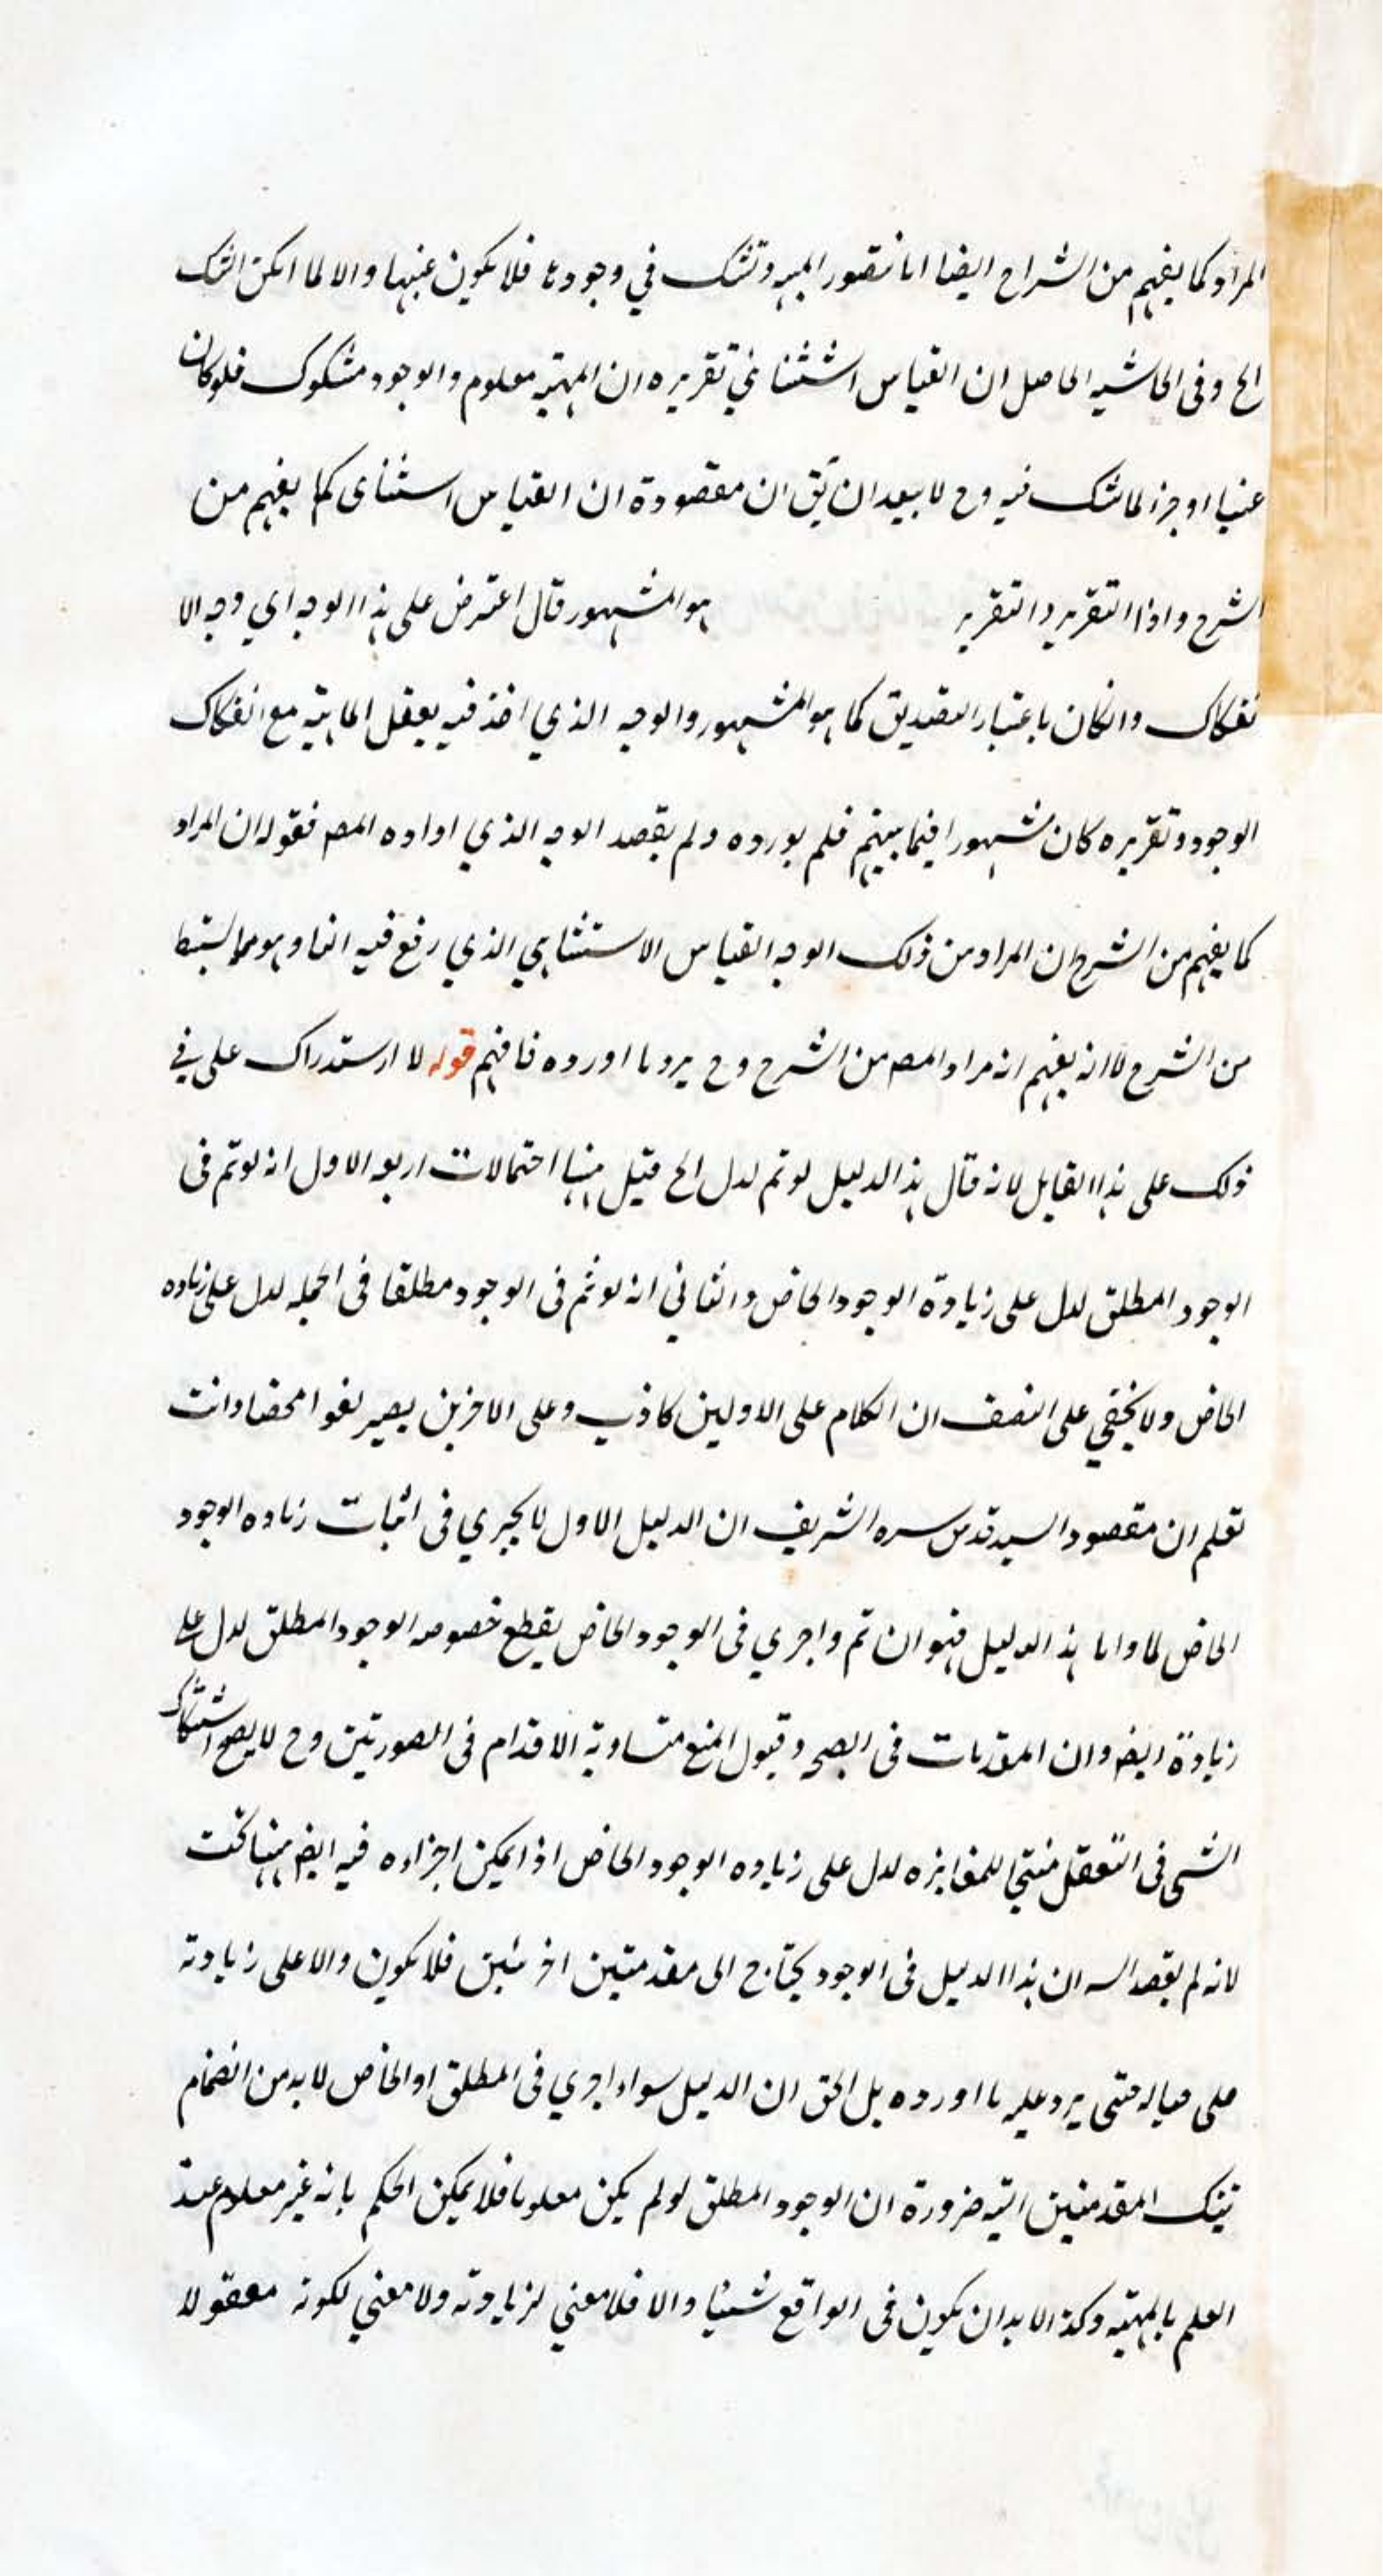 المراد كما يفهم من الشراح ايضا انا نتصور المهيه ونشك في وجودها فلا يكون عينها والا لما امكن الشك
الخ وفى الحاشيه الحاصل ان القياس استثنائي تقريره ان المهيه معلوم والوجود مشكوك فلو كان
عينا او جزء لما شك فيه وح لا يبعد ان يق ان مقصوده ان القياس استثنائى كما يفهم من
الشرح واذا التقرير د التقرير هو المشهور قال اعترض على هذا الوجه اي وجه الا
نفكاك وانكان باعتبار التصديق كما هو المشهور والوجه الذي اخذ فيه يعقل الماهيه مع انفكاك
الوجود وتقريره كان مشهورا فيما بينهم فلم يورده ولم يقصد الوجه الذي اراده المص فقوله ان المراد
كما يفهم من الشرح ان المراد من ذلك الوجه القياس الاستثنايي الذي رفع فيه انفا وهو مما يستنبط
من الشرح لا انه يفهم انه مراد المص من الشرح وح يرد ما اورده فافهم قوله لا استدراك على في
ذلك على هذا القايل لانه قال هذ الدليل لو تم لدل الخ قيل ههنا احتمالات اربعه الاول انه لو تم فى
الوجود المطلق لدل على زيادة الوجود الخاص والثاني انه لو تم فى الوجود مطلقا فى الجمله لدل على زياده
الخاص ولا يخفي على المنصف ان الكلام على الاولين كاذب وعلى الاخرين يصير لغوا محضا وانت
تعلم ان مقصود السيد قدس سره الشريف ان الدليل الاول لا يجري فى اثبات زياده الوجود
الخاص لما واما هذ الدليل فهو ان تم واجري فى الوجود الخاص بقطع خصوصه الوجود المطلق لدل على
زيادة ايضه وان المقدمات فى الصحه وقبول المنع متساوية الاقدام فى الصورتين وح لا يصح اشتكاك
الشى فى التعقل منتجا للمغايره لدل على زياده الوجود الخاص اذا يمكن اجزاءه فيه ايض ههنا كت
لانه لم يقصد السه ان هذا الدليل فى الوجود يحتاج الى مقدمتين اخر ئين فلا يكون دالا على زيادته
على حياله حتى يرد عليه ما اورده بل الحق ان الدليل سواء اجري فى المطلق او الخاص لا بد من انضمام
تينك المقدمتين اليه ضرورة ان الوجود المطلق لو لم يكن معلوما فلا يمكن الحكم بانه غير معلوم عند
العلم بالمهيه وكذا لا بد ان يكون فى الواقع شيئا والا فلا معني لزيادته ولا معني لكونه معقولا